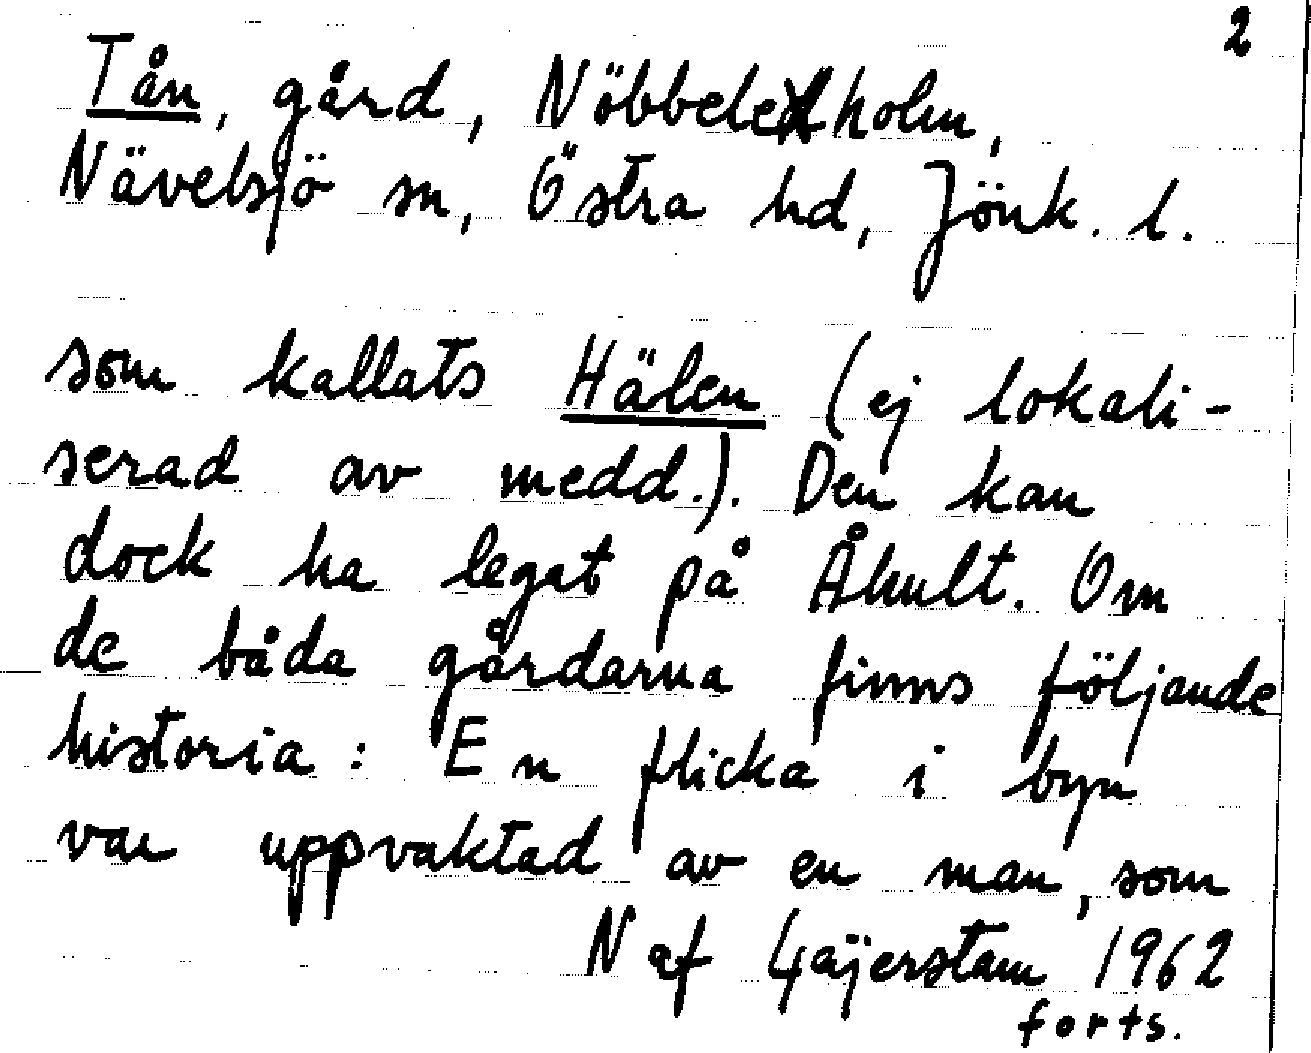 2
Tån, gård, Nöbbeleholm,
Nävelsjö sn, Östra hd, Jönk. l.
som kallats Hälen (ej lokali-
serad av medd.). Den kan
dock ha legat på Åhult. Om
de båda gårdarna finns följande
historia: En flicka i byn
var uppvaktad av en man, som
N af Gäijerstam 1962
forts.